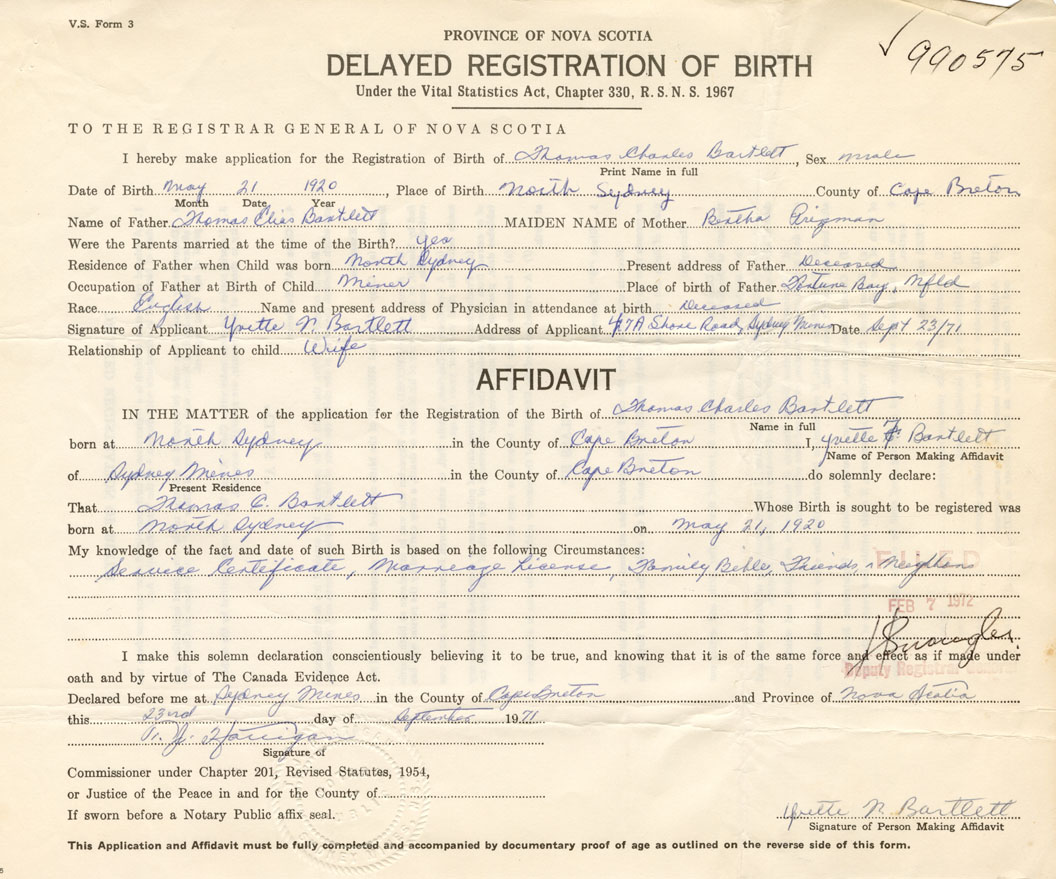 V.S. Form 3
PROVINCE OF NOVA SCOTIA
990575
DELAYED REGISTRATION OF BIRTH
Under the Vital Statistics Act, Chapter 330, R. S. N. S. 1967
TO THE REGISTRAR GENERAL OF NOVA SCOTIA
I hereby make application for the Registration of Birth of Thomas Charles Bartlett, Sex male
Print Name in full
Date of Birth May 21 1920, Place of Birth North Sydney County of Cape Breton
Month Date Year
Name of Father Thomas Elias Bartlett MAIDEN NAME of Mother Bertha
Were the Parents married at the time of the Birth? yes
Residence of Father when Child was born North Sydney Present address of Father Deceased
Occupation of Father at Birth of Child Miner Place of birth of Father Fortune Bay, Nfld
Race English Name and present address of Physician in attendance at birth Deceased
Signature of Applicant Yvette N. Bartlett Address of Applicant 47A Shore Road, Sydney Mines Date Sept 23/71
Relationship of Applicant to child Wife
AFFIDAVIT
IN THE MATTER of the application for the Registration of the Birth of Thomas Charles Bartlett
Name in full
born at North Sydney in the County of Cape Breton I, Yvette Bartlett
Name of Person Making Affidavit
of Sydney Mines in the County of Cape Breton do solemnly declare:
Present Residence
That Thomas C. Bartlett Whose Birth is sought to be registered was
born at North Sydney on May 21, 1920
My knowledge of the fact and date of such Birth is based on the following Circumstances:
FILED
Service Certificate, Marreage License, Family Bible, Friends,
FEB 7 1972
I make this solemn declaration conscientiously believing it to be true, and knowing that it is of the same force and effect as if made under
Deputy Registrar General
oath and by virtue of The Canada Evidence Act.
Declared before me at Sydney Mines in the County of Cape Breton and Province of Nova Scotia
this 23rd day of September 1971
Signature of
Commissioner under Chapter 201, Revised Statutes, 1954,
or Justice of the Peace in and for the County of
If sworn before a Notary Public affix seal.
Yvette N. Bartlett
Signature of Person Making Affidavit
This Application and Affidavit must be fully completed and accompanied by documentary proof of age as outlined on the reverse side of this form.